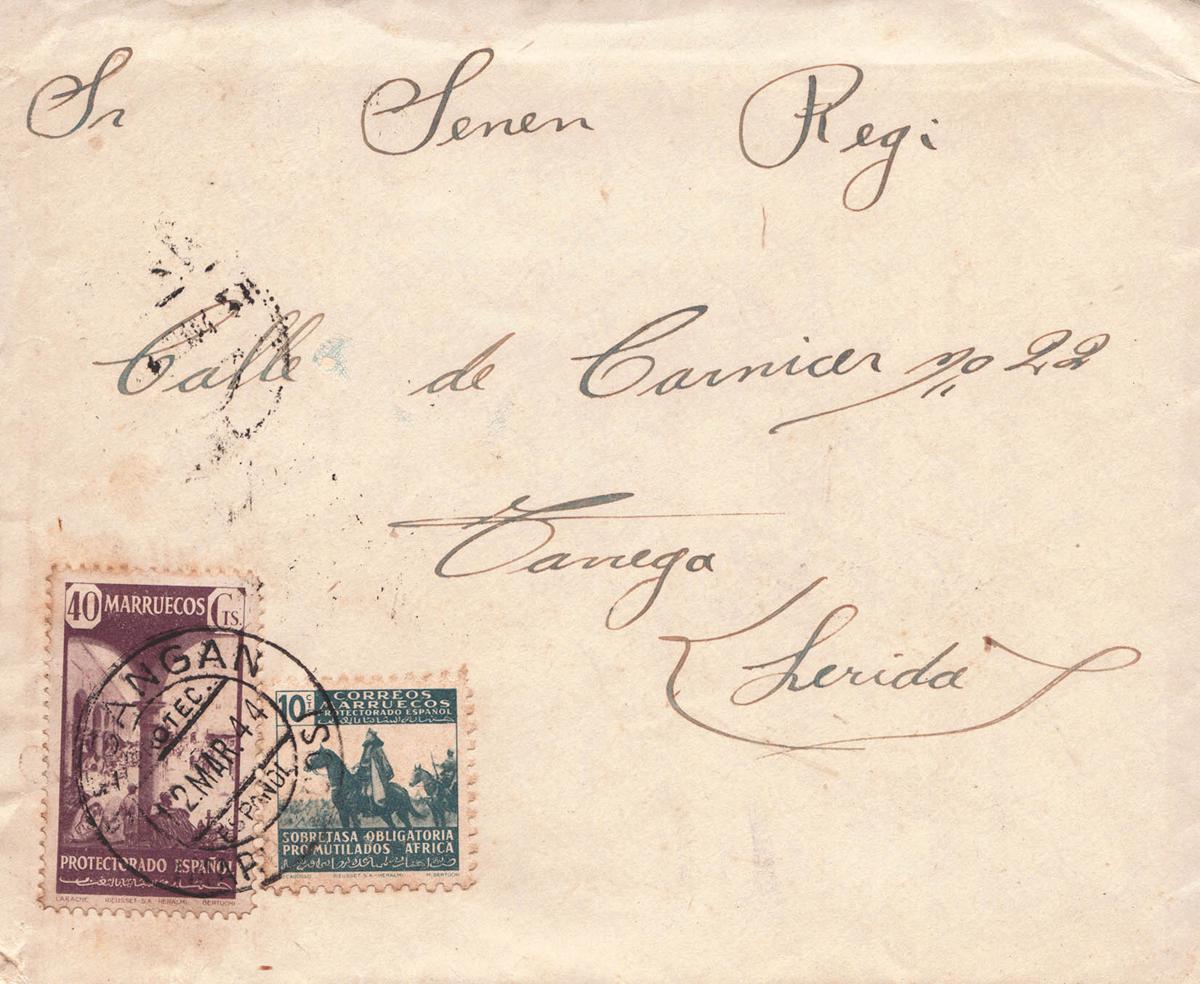 Sr Senen Regi
Calle de Carnicer no 22
Tarrega
Lerida
40 MARRUECOS CTS.
PROTECTORADO ESPAÑOL
LARACHE RIEUSSET-S.A.-HERALMI BERTUCHI
10 CTS CORREOS
MARRUECOS
PROTECTORADO ESPAÑOL
SOBRETASA OBLIGATORIA
PRO MUTILADOS AFRICA
RIEUSSET-S.A.-HERALMI M. BERTUCHI
ANGAN
OTEC.
12.MAR.44
ESPAÑOL